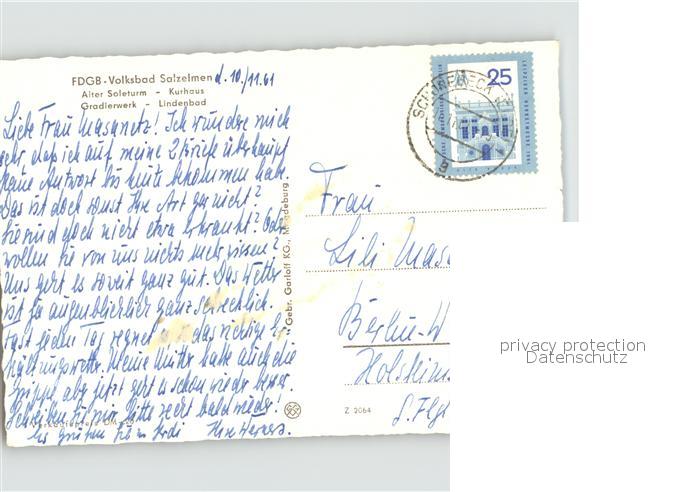 FDGB-Volksbad Salzelmen d. 10./11.61
Alter Soleturm - Kurhaus
Gradierwerk - Lindenbad
Liebe Frau Masanetz! Ich wundere mich
sehr, daß ich auf meine 2 Briefe überhaupt
keine Antwort bis heute bekommen habe.
Das ist doch sonst Ihre Art gar nicht?
Sie sind doch nicht etwa erkrankt? Oder
wollen Sie von uns nichts mehr wissen?
Uns geht es soweit ganz gut. Das Wetter
ist ja augenblicklich ganz schrecklich.
Fast jeden Tag regnet das richtige Er-
kältungswetter. Meine Mutter hatte auch die
Grippe, aber jetzt geht es schon wieder besser.
Schreiben Sie mir bitte recht bald wieder!
Es grüßen Sie Ihre
Gebr. Garloff KG., Magdeburg
25
SCHÖNEBECK
Frau
Lili Masa
Berlin-W
Holstein
Z 2064
privacy protection
Datenschutz